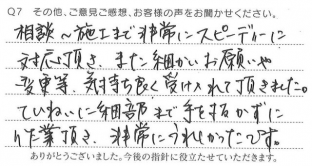 Q7 その他、ご意見ご感想、お客様の声をお聞かせください。
相談～施工まで非常にスピーディーに
対応頂き、また細かいお願いや
変更等、気持ち良く受け入れて頂きました。
ていねいに細部まで手を抜かずに
作業頂き、非常にうれしかったです。
ありがとうございました。今後の指針に役立たせていただきます。